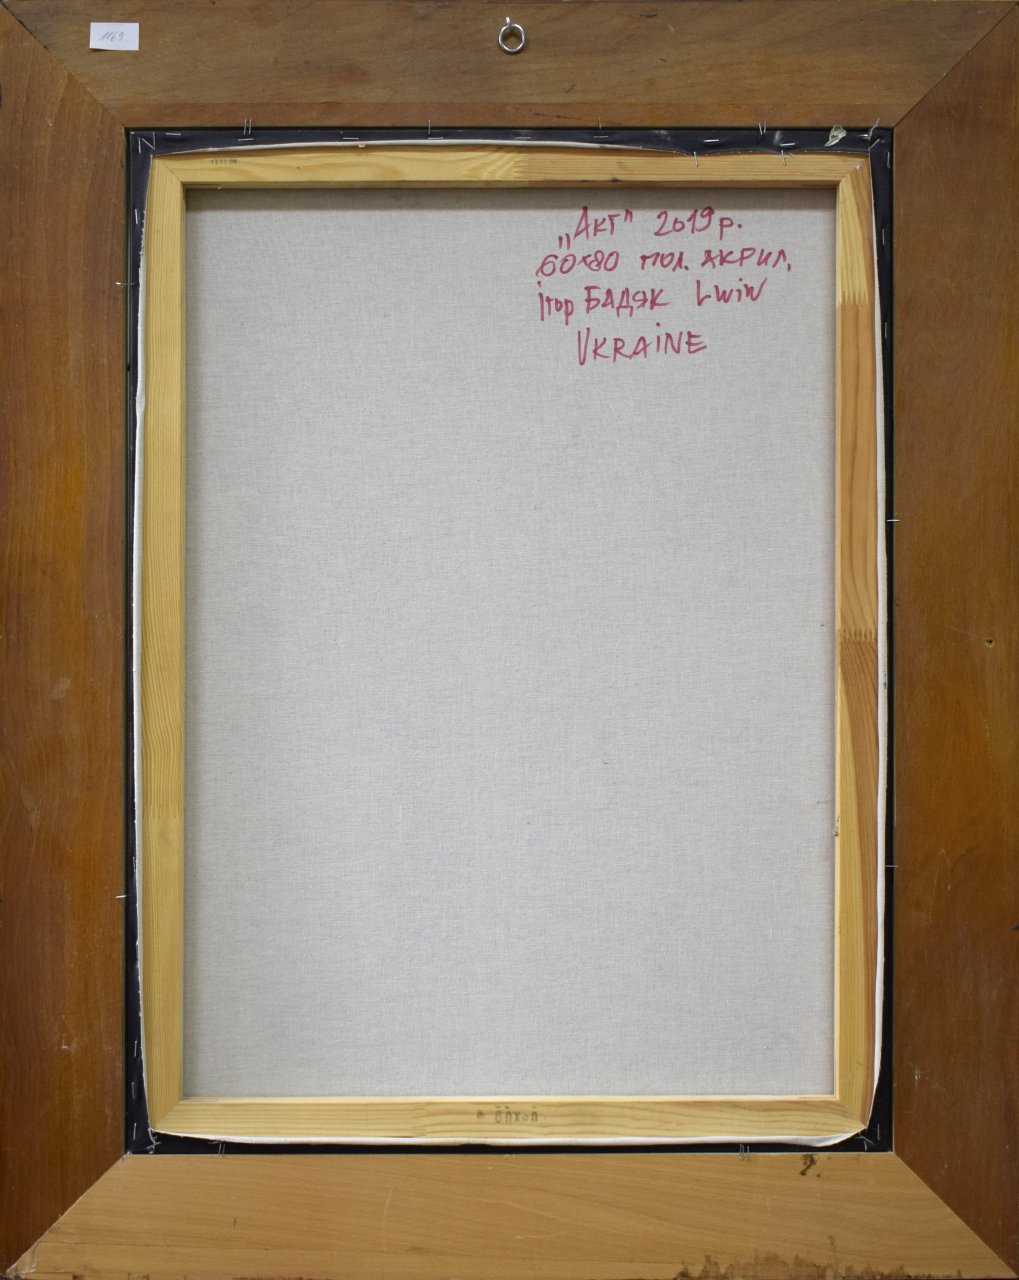 1169
„Акт" 2019 р.
60×80 пол. акрил.
Ігор Бадяк Lwiw
UKRAINE